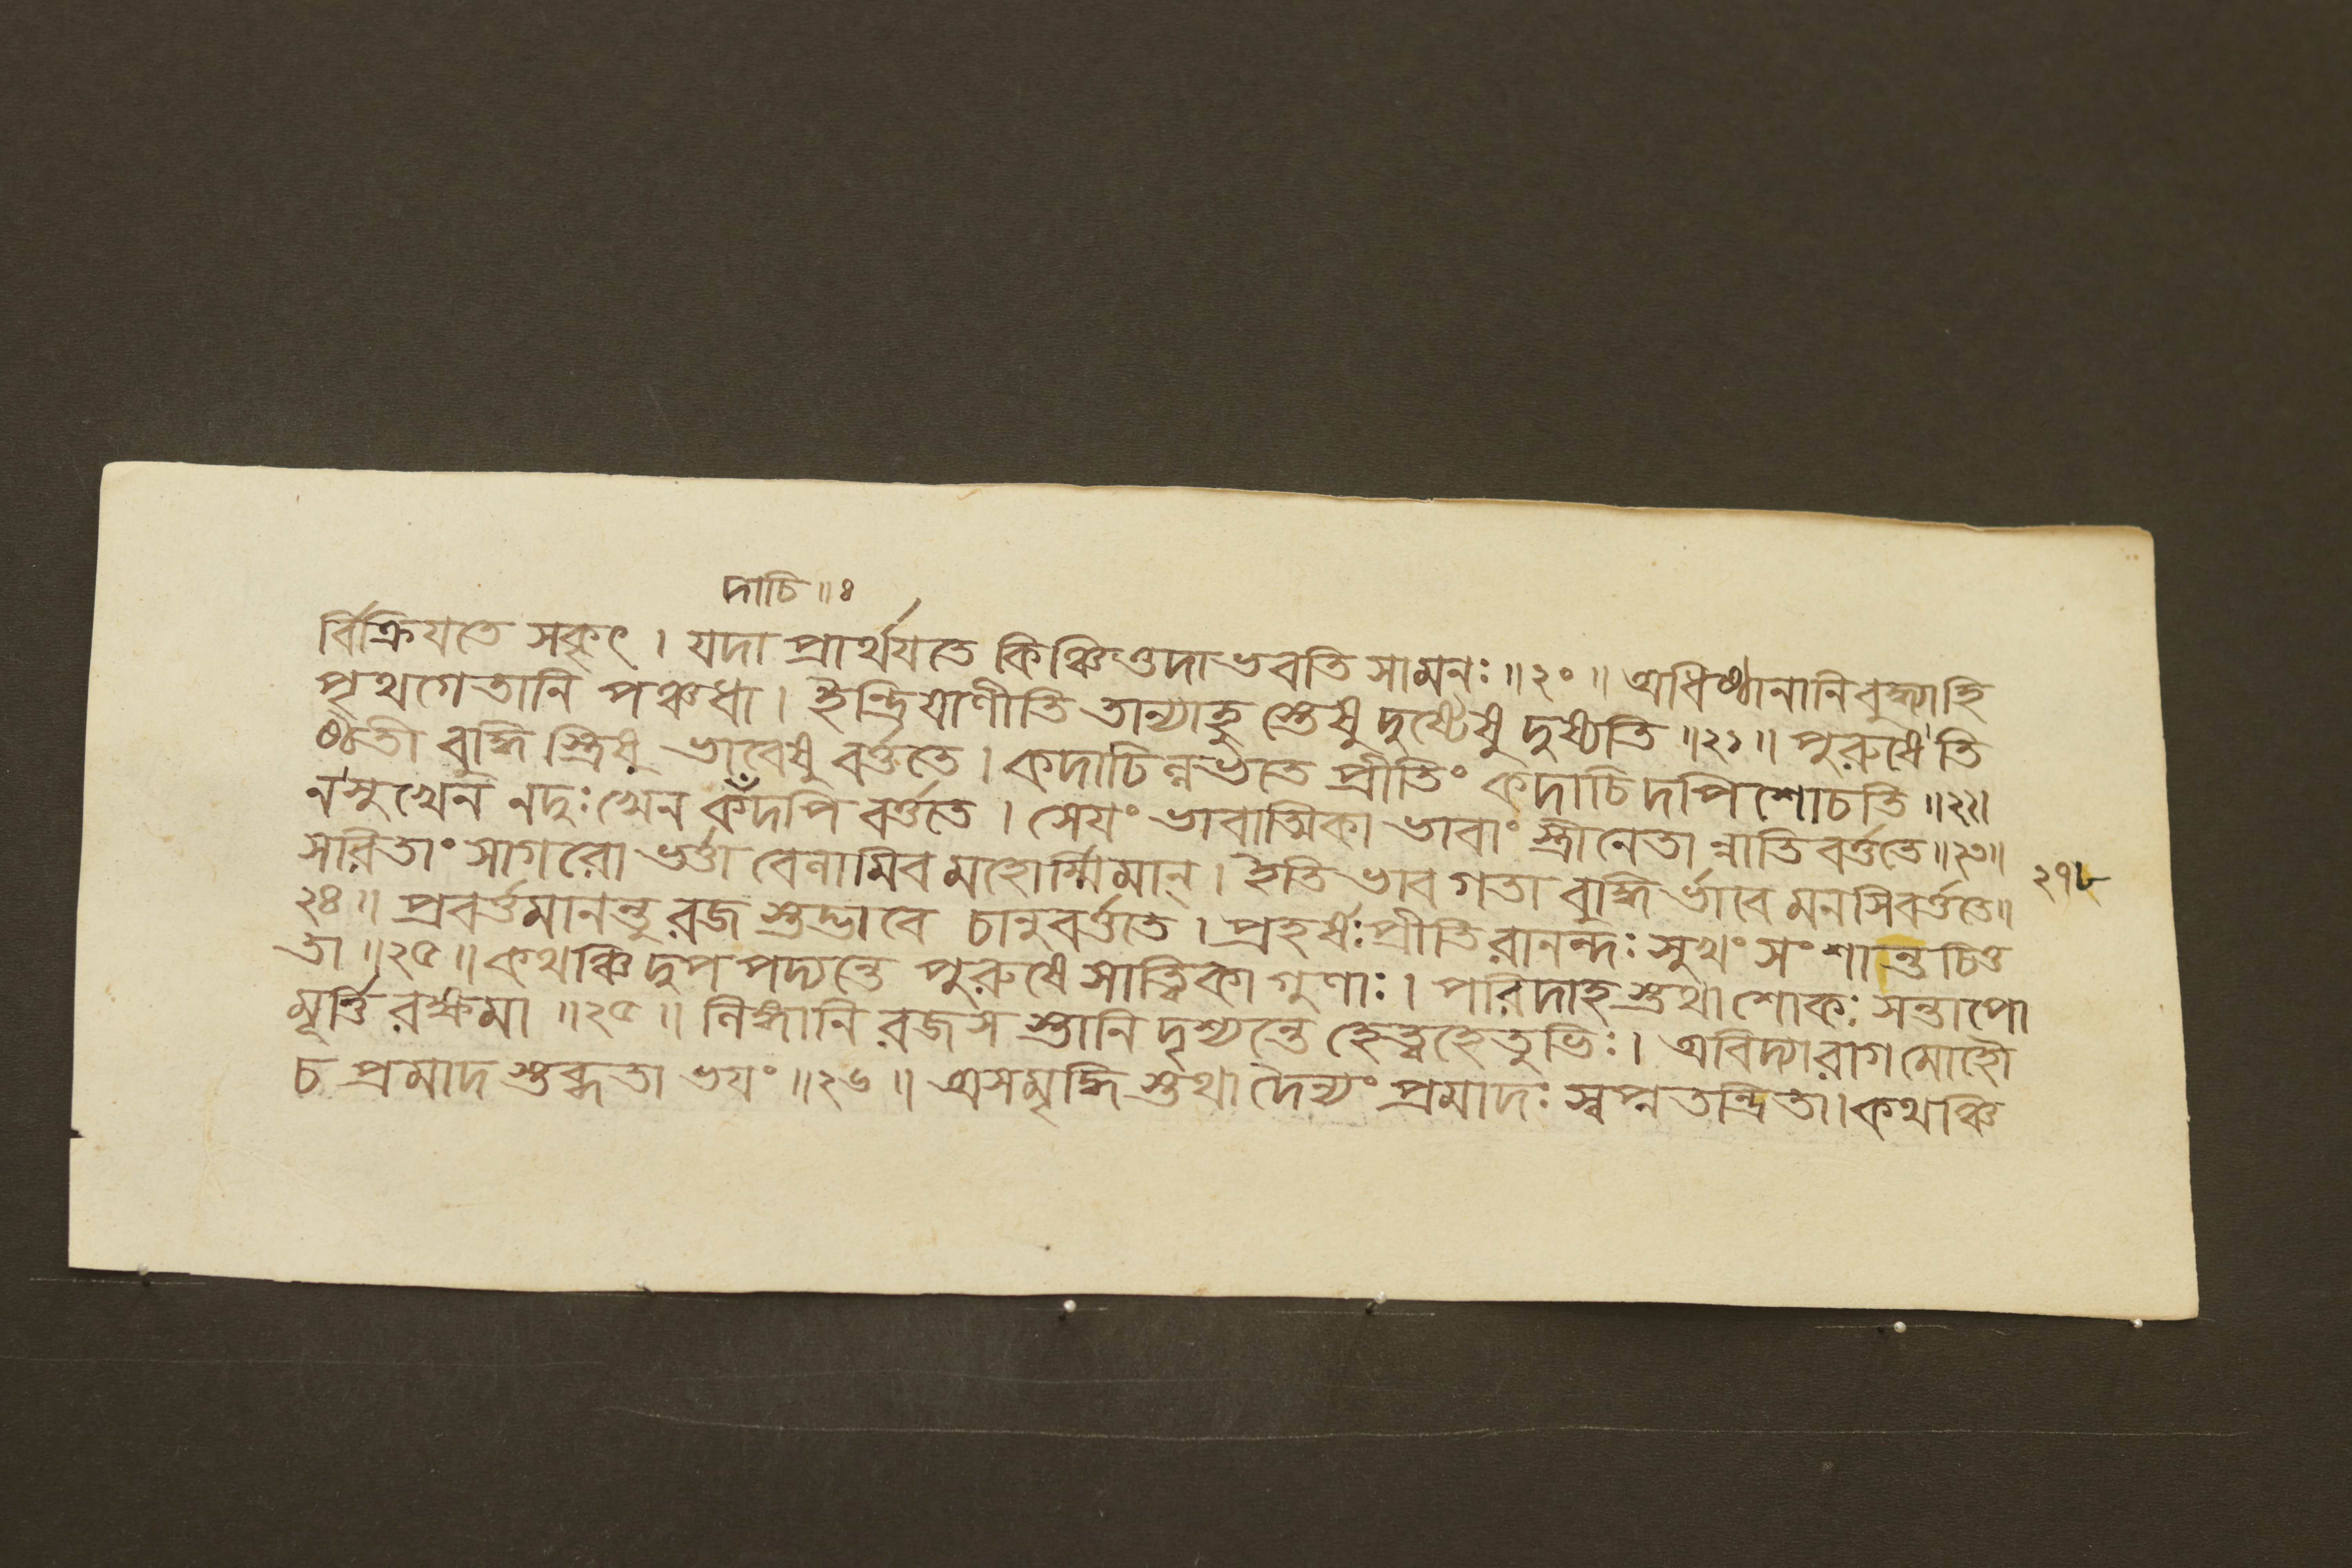 দাচি॥৪
র্বিক্রিযতে সকৃৎ। যদা প্রার্থযতে কিঞ্চিত্তদা ভবতি সা মনঃ॥২০॥ অধিষ্ঠানানি বুদ্ধ্যা হি
পৃথগেতানি পঞ্চধা। ইন্দ্রিযাণীতি তান্যাহু স্তেষু দুষ্টেষু দুষ্যতি॥২১॥ পুরুষে তি
ষ্ঠতী বুদ্ধি স্ত্রিষু ভাবেষু বর্ত্ততে। কদাচিল্লভতে প্রীতিং কদাচিদপি শোচতি॥২২॥
ন সুখেন ন দুঃখেন কদপি বর্ত্ততে। সেযং ভাবাত্মিকা ভাবাং স্ত্রীনেতা ন্নাতিবর্ত্ততে॥২৩॥
সরিতাং সাগরো ভর্ত্তা বেলামিব মহোর্ম্মিমান্। ইতি ভাবগতা বুদ্ধি র্ভাবে মনসি বর্ত্ততে॥
২৭৮
২৪॥ প্রবর্ত্তমানন্তু রজ স্তদ্ভাবে চানুবর্ত্ততে। প্রহর্ষঃ প্রীতিরানন্দঃ সুখং সংশান্তচিত্ত
তা॥২৫॥ কথঞ্চিদুপপদ্যন্তে পুরুষে সাত্ত্বিকা গুণাঃ। পরিদাহ স্তথা শোকঃ সন্তাপো
মূর্ত্তি রক্ষমা॥২৫॥ লিঙ্গানি রজস স্তানি দৃশ্যন্তে হেত্বহেতুভিঃ। অবিদ্যারাগমোহৌ
চ প্রমাদ স্তব্ধতা ভযং॥২৬॥ অসমৃদ্ধি স্তথা দৈন্যং প্রমাদঃ স্বপ্নতন্দ্রিতা। কথঞ্চি